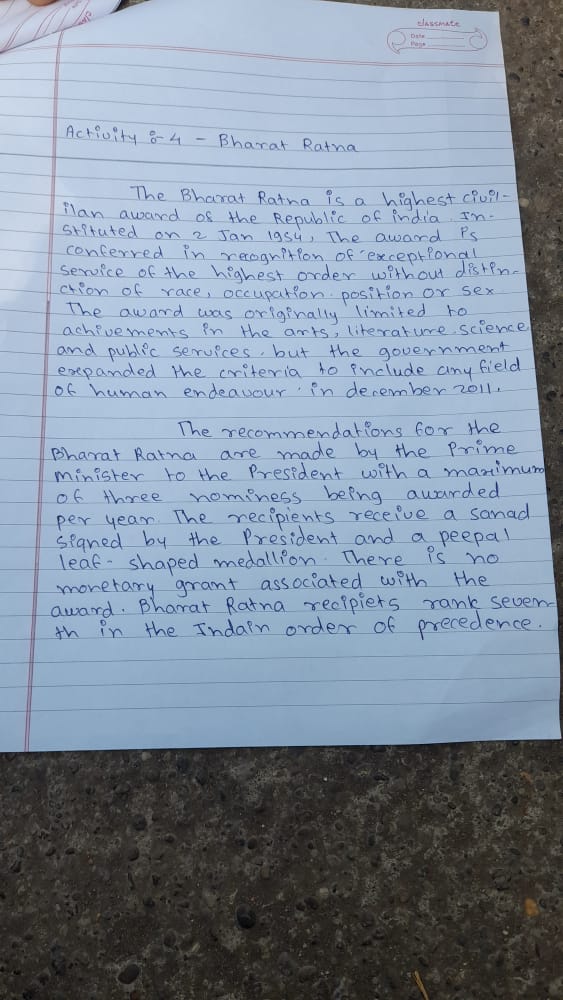 classmate
Date
Page
Activity :- 4 - Bharat Ratna
The Bharat Ratna is a highest civil-
ilan award of the Republic of india. In-
stituted on 2 Jan 1954, The award is
conferred in recognition of exceptional
service of the highest order without distin-
ction of race, occupation. position or sex
The award was originally limited to
achivements in the arts, literature. science
and public services. but the government
exepanded the criteria to include any field
of human endeavour. in december 2011.
The recommendations for the
Bharat Ratna are made by the Prime
minister to the President with a maximum
of three nominess being awarded
per year. The recipients receive a sanad
signed by the President and a peepal
leaf- shaped medallion. There is no
monetary grant associated with the
award. Bharat Ratna recipiets rank seven-
th in the Indain order of precedence.